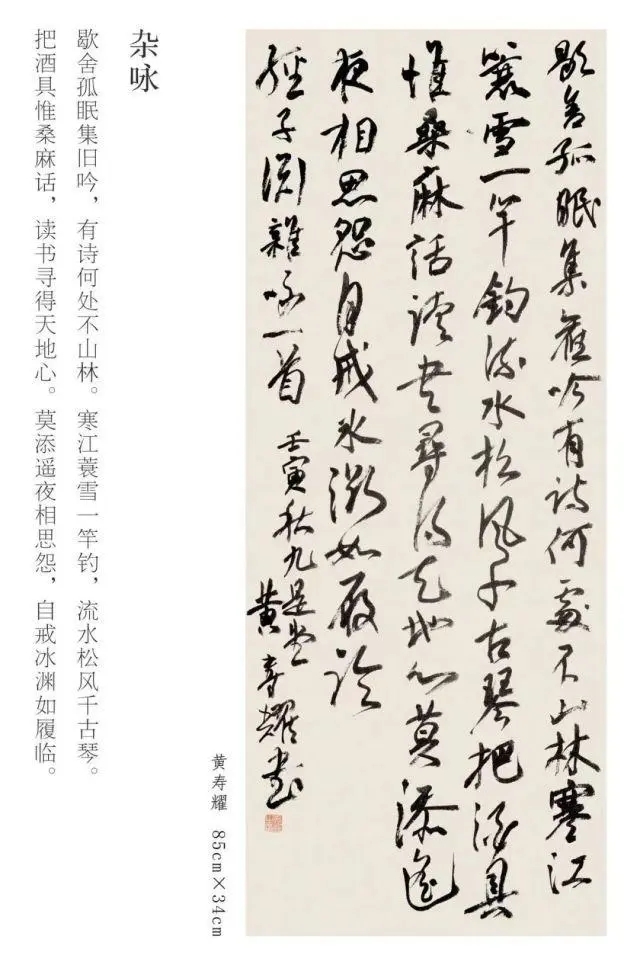 杂咏
歇舍孤眠集旧吟，有诗何处不山林。寒江蓑雪一竿钓，流水松风千古琴。
把酒具惟桑麻话，读书寻得天地心。莫添遥夜相思怨，自戒冰渊如履临。
歇舍孤眠集舊吟有詩何處不山林寒江
蓑雪一竿釣流水松風千古琴把酒具
惟桑麻話讀書尋得天地心莫添遙
夜相思怨自戒冰淵如履臨
經子淵雜咏一首 壬寅秋九是堂
黄壽耀書
黄寿耀 85cm×34cm